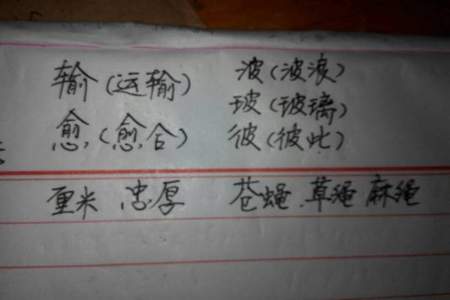 输(运输) 波(波浪)
玻(玻璃)
愈(愈合) 彼(彼此)
厘米 忠厚 苍蝇 草绳 麻绳